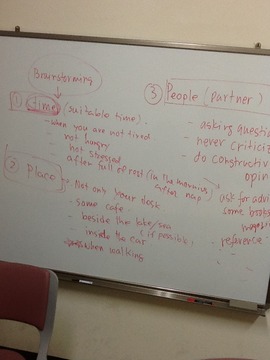 Brainstorming
① time (suitable time).
- when you are not tired
not hungry
not stressed
after full of rest (in the morning / after nap)
② Place
- Not only your desk
- some cafe
- beside the lake/sea
- inside the car (if possible)
- when walking
③ People (partner)
- asking question
- never criticiz
- do constructiv
opin
ask for advi
some books
- reference